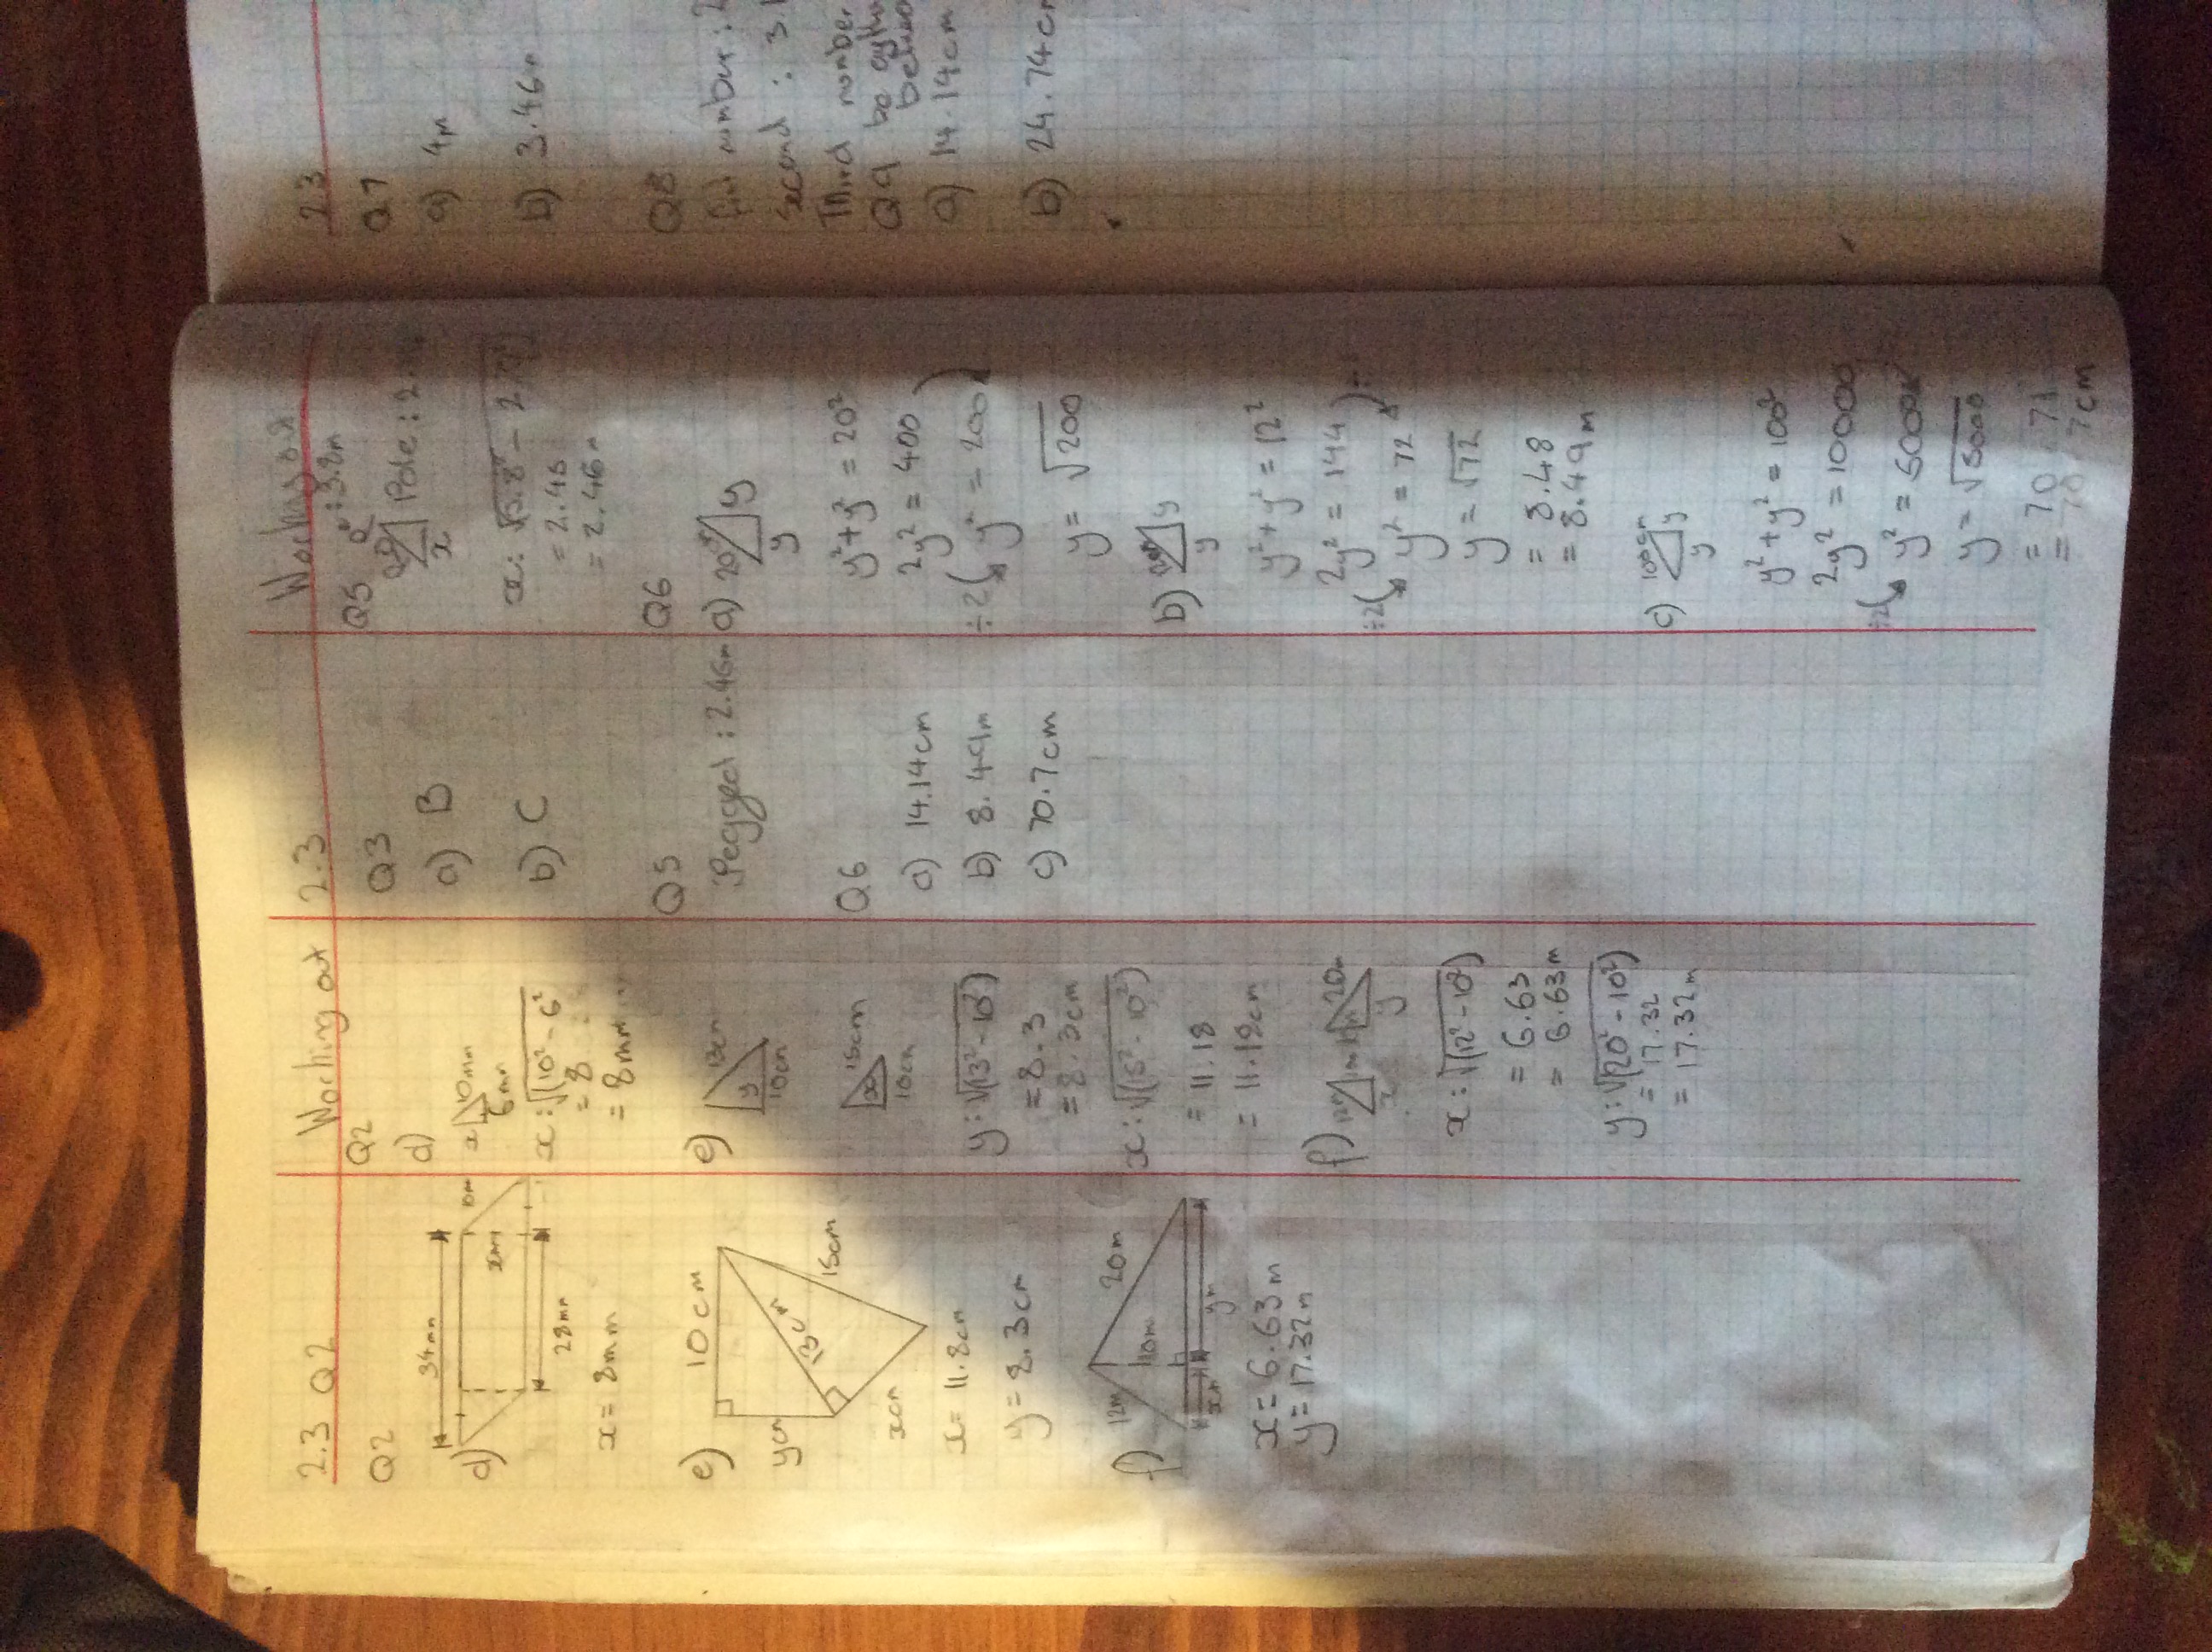 2.3 Q2
Q2
d)
34mm
10m
xmm
28mm
x = 8mm
e)
10cm
ycm
13cm
15cm
xcm
x = 11.8cm
y = 8.3cm
f)
12m
10m
20m
xm
ym
x = 6.63m
y = 17.32m
Working out
Q2
d)
x 10mm
6mm
x : √(10² - 6²
= 8
= 8mm
e)
13cm
y
10cm
15cm
x
10cm
y : √(13² - 10²)
= 8.3
= 8.3cm
x : √(15² - 10²)
= 11.18
= 11.18cm
f)
20m
x
y
x : √(12² - 10²)
= 6.63
= 6.63m
y : √(20² - 10²)
= 17.32
= 17.32m
2.3
Q3
a) B
b) C
Q5
Pegged : 2.46m
Q6
a) 14.14cm
b) 8.49m
c) 70.7cm
Working out
Q5
: 3.8m
Pole : 2.
x
x :
= 2.45
= 2.46m
Q6
a)
y
y
y² + y² = 20²
2y² = 400
÷2 ( y² = 200 )
y = √200
b)
y
y
y² + y² = 12²
2y² = 144
÷2 ( y² = 72
y = √72
= 8.48
= 8.49m
c) 100cm
y
y
y² + y² = 100²
2y² = 10000
÷2 ( y² = 5000
y = √5000
= 70.71
= 70.7cm
2.3
Q7
a) 4m
b) 3.46m
Q8
number : 2
Second : 3
Third number
Q9 be
a) 14.14cm
b) 24.74cm